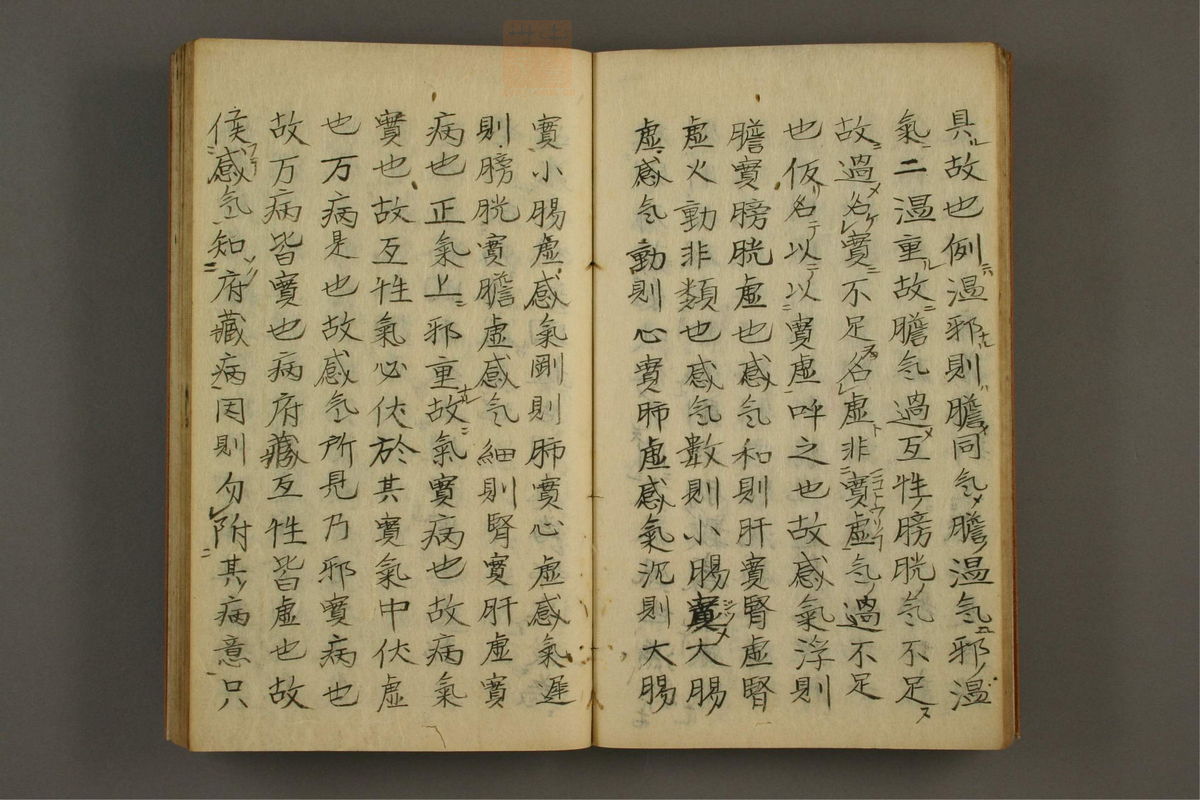 具故也例温邪則膽同气膽温气邪温
氣二温重故膽气過互性膀胱气不足
故過名實不足名虚非實虚气過不足
也仮名以以實虚呼之也故感氣浮則
膽實膀胱虚也感气和則肝實腎虚腎
虚火動非類也感气數則小腸實大腸
虚感气動則心實肺虚感氣沉則大腸
實小腸虚感氣剛則肺實心虚感氣遲
則膀胱實膽虚感气細則腎實肝虚實
病也正氣上邪重故氣實病也故病氣
實也故互性氣必伏於其實氣中伏虚
也万病是也故感气所見乃邪實病也
故万病皆實也病府藏互性皆虚也故
候感气知府藏病因則勿附其病意只